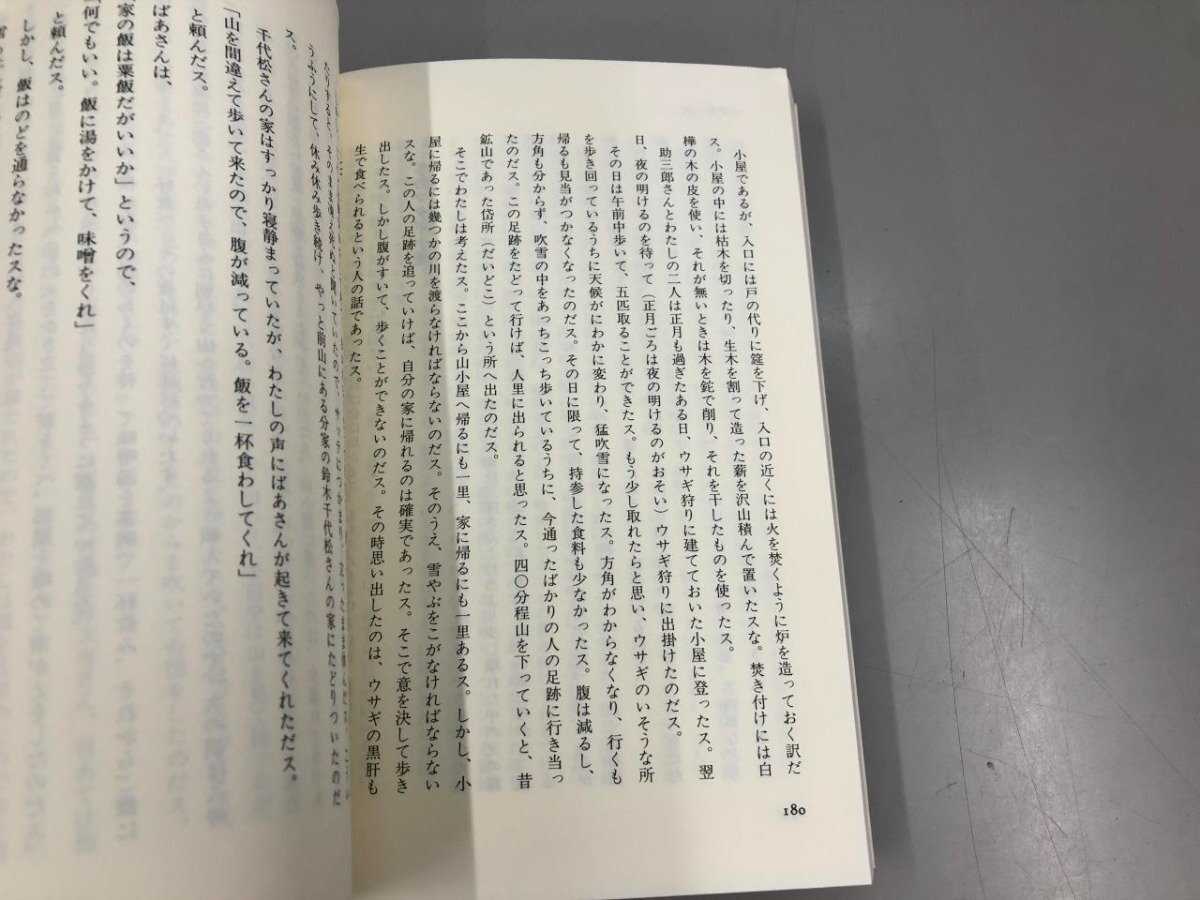 小屋であるが、入口には戸の代りに筵を下げ、入口の近くには火を焚くように炉を造っておく訳だ
ス。小屋の中には枯木を切ったり、生木を割って造った薪を沢山積んで置いたスな。焚き付けには白
樺の木の皮を使い、それが無いときは木を鉈で削り、それを干したものを使ったス。
助三郎さんとわたしの二人は正月も過ぎたある日、ウサギ狩りに建てておいた小屋に登ったス。翌
日、夜の明けるのを待って（正月ごろは夜の明けるのがおそい）ウサギ狩りに出掛けたのだス。
その日は午前中歩いて、五匹取ることができたス。もう少し取れたらと思い、ウサギのいそうな所
を歩き回っているうちに天候がにわかに変わり、猛吹雪になったス。方角がわからなくなり、行くも
帰るも見当がつかなくなったのだス。その日に限って、持参した食料も少なかったス。腹は減るし、
方角も分からず、吹雪の中をあっちこっち歩いているうちに、今通ったばかりの人の足跡に行き当っ
たのだス。この足跡をたどって行けば、人里に出られると思ったス。四〇分程山を下っていくと、昔
鉱山であった岱所（だいどこ）という所へ出たのだス。
そこでわたしは考えたス。ここから山小屋へ帰るにも一里、家に帰るにも一里あるス。しかし、小
屋に帰るには幾つかの川を渡らなければならないのだス。そのうえ、雪やぶをこがなければならない
スな。この人の足跡を追っていけば、自分の家に帰れるのは確実であったス。そこで意を決して歩き
出したス。しかし腹がすいて、歩くことができないのだス。その時思い出したのは、ウサギの黒肝も
生で食べられるという人の話であったス。
180
うふうにして、休み休み歩き続け、やっと前山にある分家の鈴木千代松さんの家にたどりついたのだ
ス。
千代松さんの家はすっかり寝静まっていたが、わたしの声にばあさんが起きて来てくれただス。
「山を間違えて歩いて来たので、腹が減っている。飯を一杯食わしてくれ」
と頼んだス。
ばあさんは、
「家の飯は粟飯だがいいか」というので、
「何でもいい。飯に湯をかけて、味噌をくれ」
と頼んだス。
しかし、飯はのどを通らなかったスな。